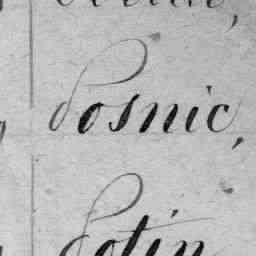 Posnic,
Potin